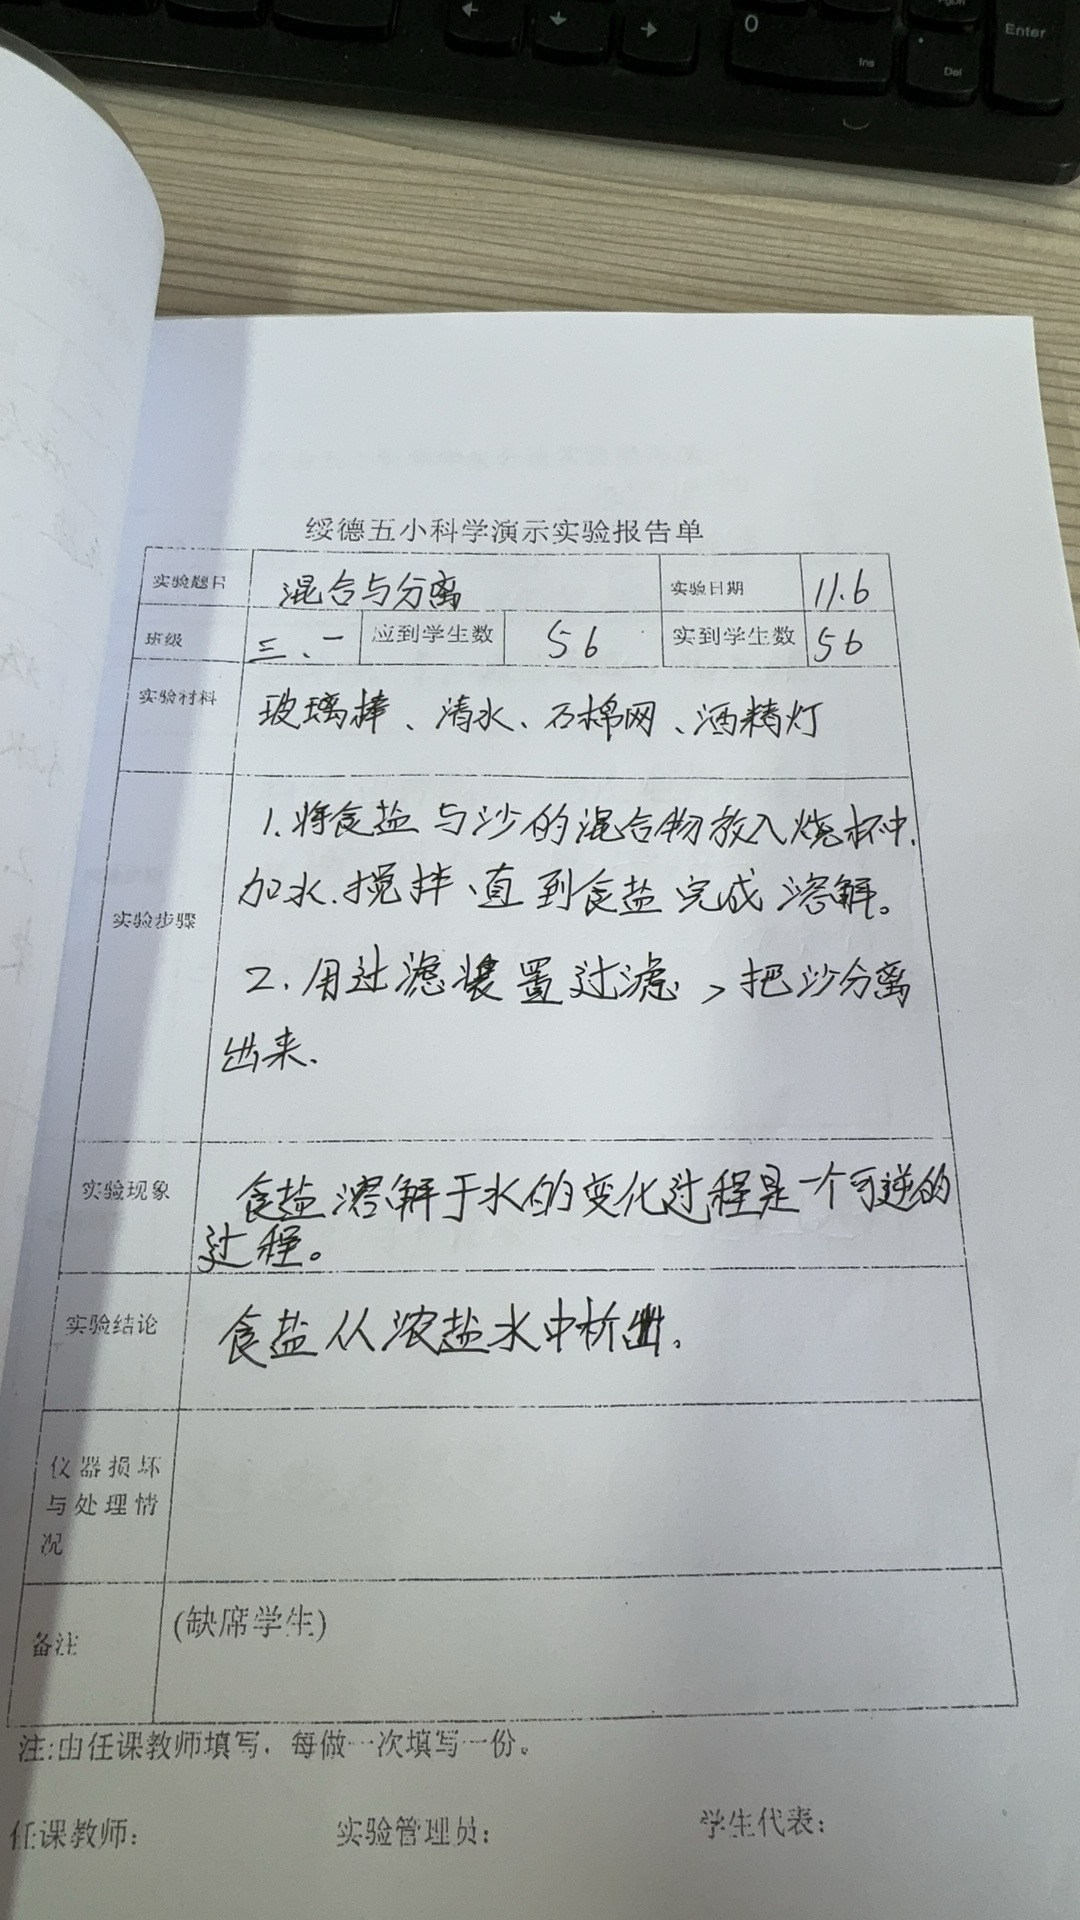 PgDn
Enter
0
Ins
.
Del
绥德五小科学演示实验报告单
实验题目 混合与分离 实验日期 11.6
班级 三、一 应到学生数 56 实到学生数 56
实验材料 玻璃棒、清水、石棉网、酒精灯
1.将食盐与沙的混合物放入烧杯中.
加水.搅拌、直到食盐完成溶解。
实验步骤
2.用过滤装置过滤,把沙分离
出来.
实验现象 食盐溶解于水的变化过程是一个可逆的
过程。
实验结论 食盐从浓盐水中析出.
仪器损坏
与处理情
况
备注 (缺席学生)
注:由任课教师填写,每做一次填写一份。
任课教师: 实验管理员: 学生代表: